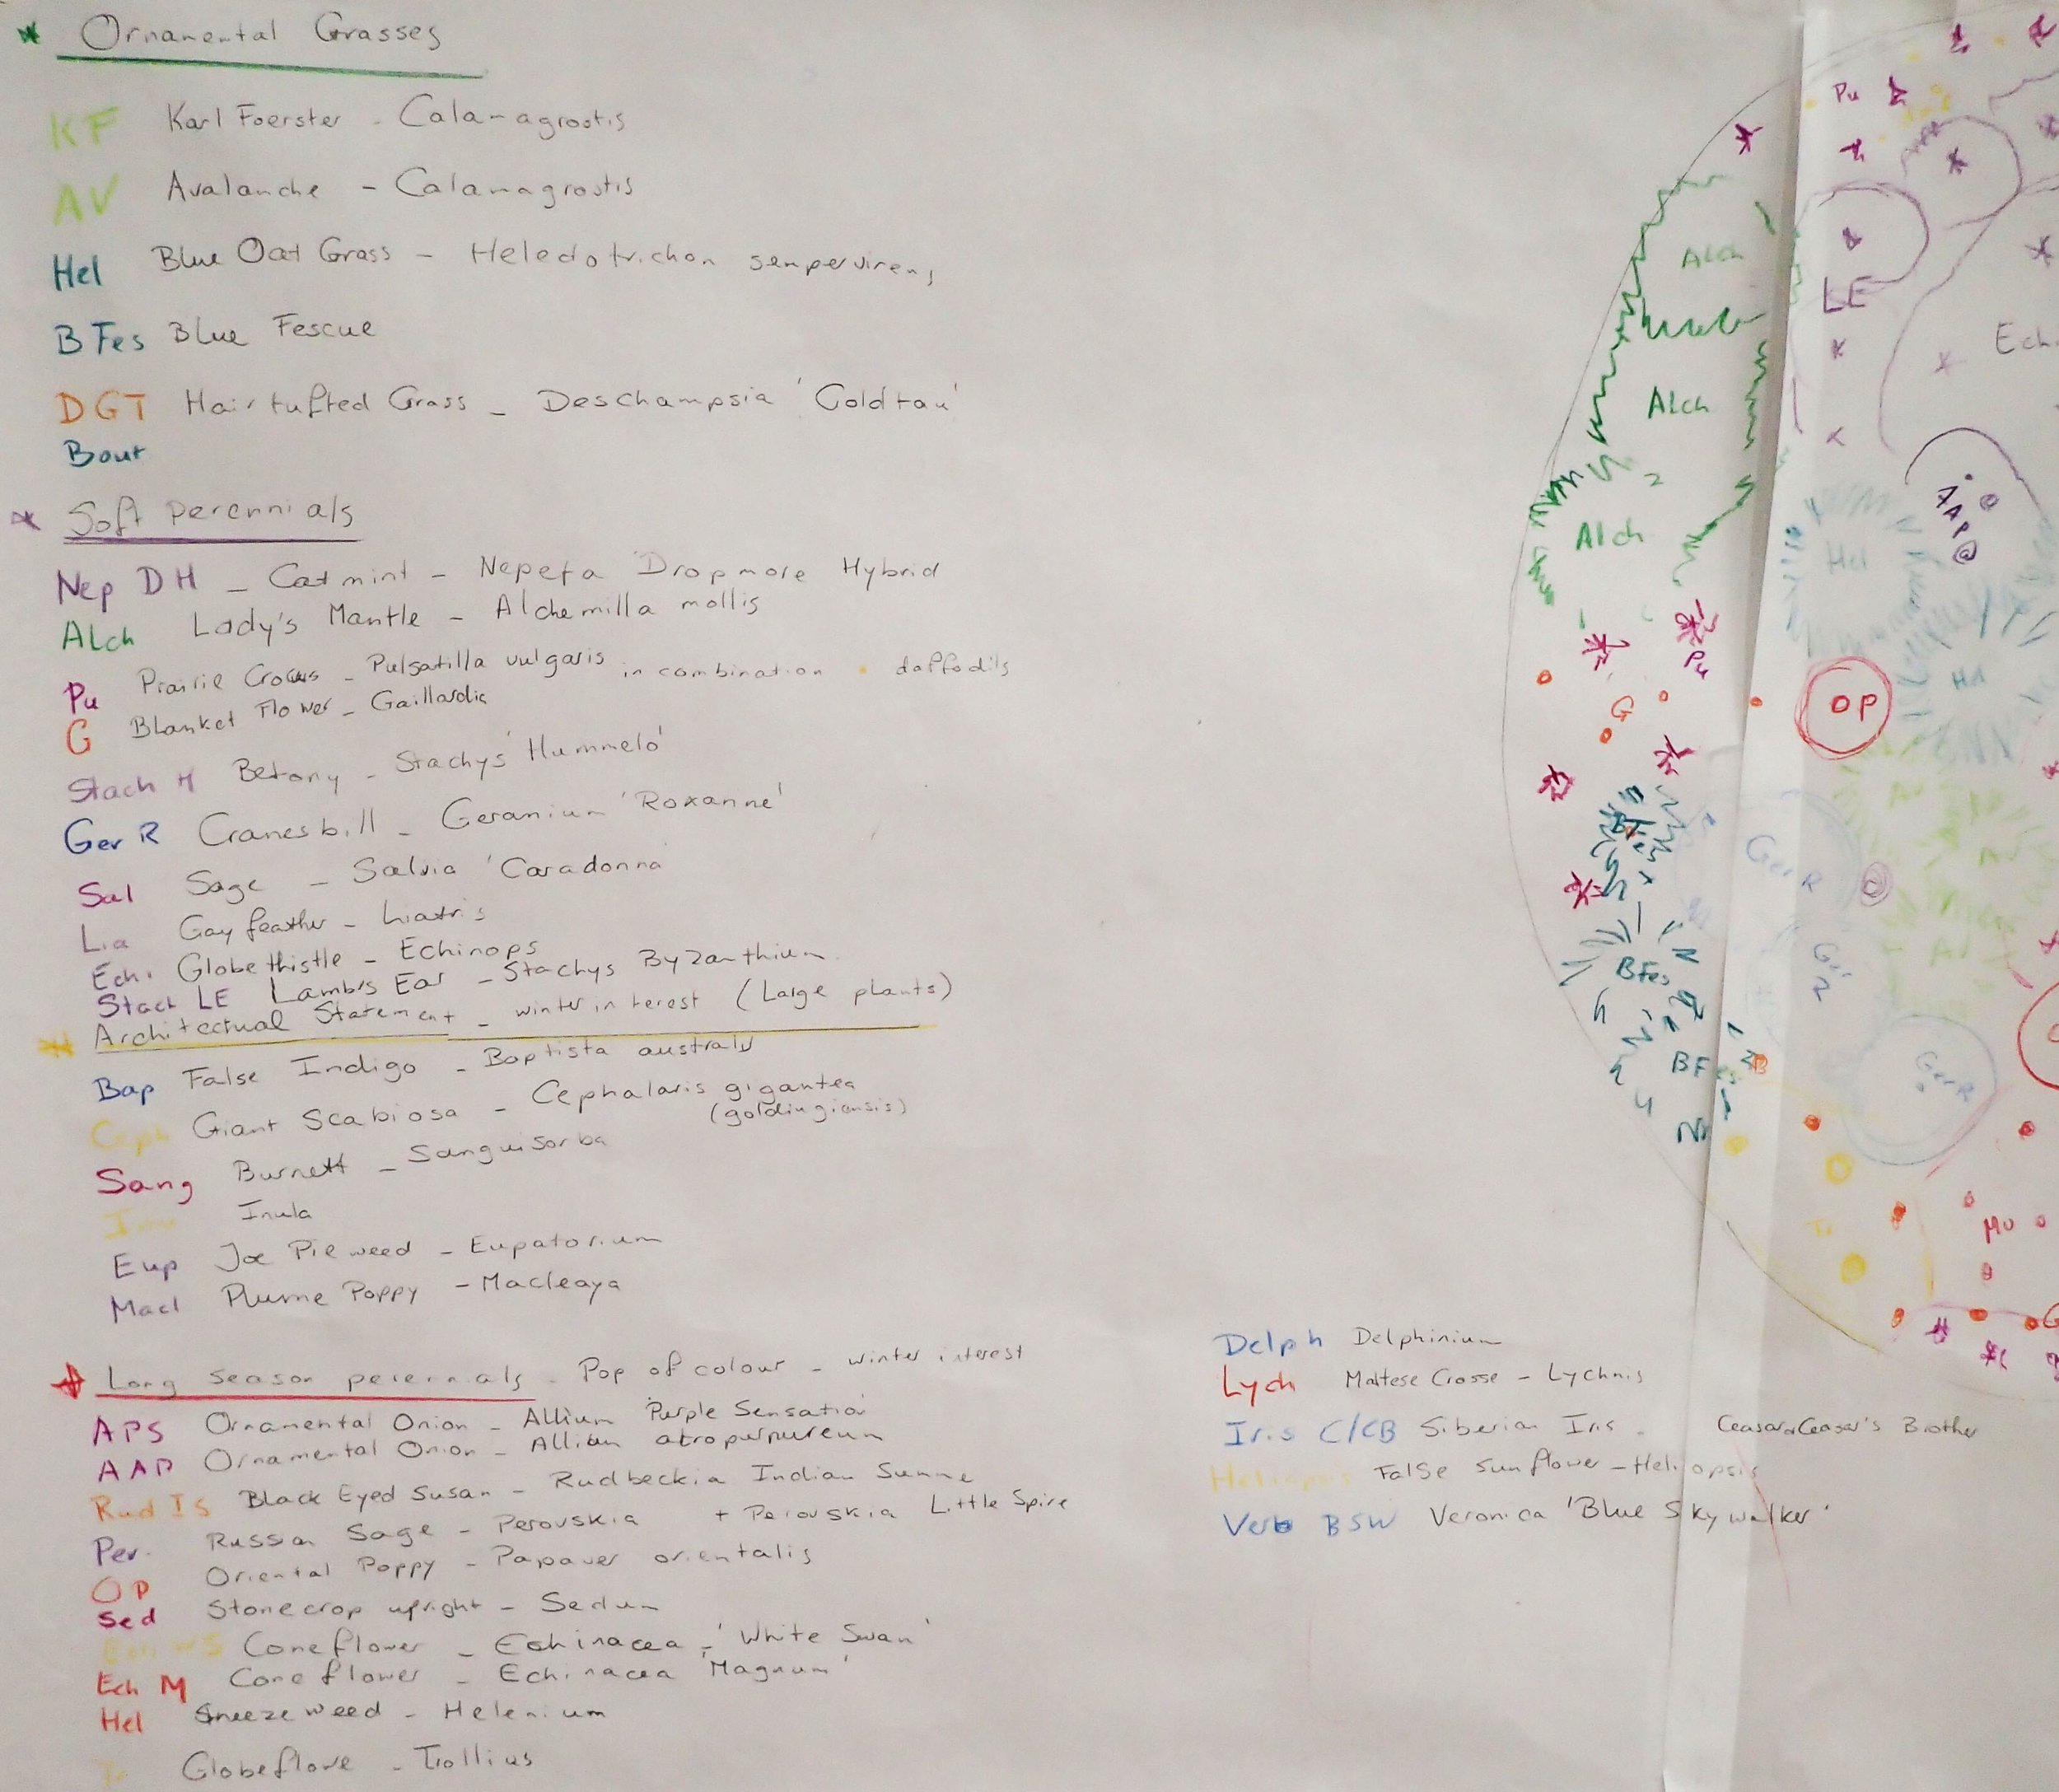 Ornamental Grasses
KF Karl Foerster - Calamagrostis
AV Avalanche - Calamagrostis
Hel Blue Oat Grass - Heledotrichon sempervirens
B Fes Blue Fescue
DGT Hair tufted Grass - Deschampsia 'Goldtau'
Bout
Soft perennials
Nep DH - Catmint - Nepeta Dropmore Hybrid
Alch Lady's Mantle - Alchemilla mollis
Pu Prairie Crocus - Pulsatilla vulgaris in combination daffodils
G Blanket Flower - Gaillardia
Stach H Betony - Stachys 'Hummelo'
Ger R Cranesbill - Geranium 'Roxanne'
Sal Sage - Salvia 'Caradonna
Lia Gay feather - Liatris
Ech. Globethistle - Echinops
Stach LE Lamb's Ear - Stachys Byzanthium
Architectual Statement - winter interest (Large plants)
Bap False Indigo - Baptista australis
Ceph Giant Scabiosa - Cephalaris gigantea
(goldingiensis)
Sang Burnett - Sanguisorba
Inu Inula
Eup Joe Pie weed - Eupatorium
Macl Plume Poppy - Macleaya
Long season perennials - Pop of colour - winter interest
APS Ornamental Onion - Allium 'Purple Sensation
AAP Ornamental Onion - Allium atropurpureum
Rud IS Black Eyed Susan - Rudbeckia Indian Summe
Per. Russian Sage - Perovskia + Perovskia Little Spire
OP Oriental Poppy - Papaver orientalis
Sed Stonecrop upright - Sedum
Ech WS Coneflower - Echinacea - 'White Swan'
Ech M Coneflower - Echinacea 'Magnum'
Hel Sneezeweed - Helenium
Tr Globeflowe - Trollius
Delph Delphinium
Lych Maltese Crosse - Lychnis
Iris C/CB Siberian Iris - Ceasar & Ceasar's Brother
Heliopsis False sunflower - Heliopsis
Verb BSW Veronica 'Blue Skywalker'
Pu
Alch
LE
Ech.
Alch
AAP
Alch
Hel
Pu
Hel
OP
G
BFes
Ger R
Av
BFes
Av
Ger
R
BF
Ger R
Tr